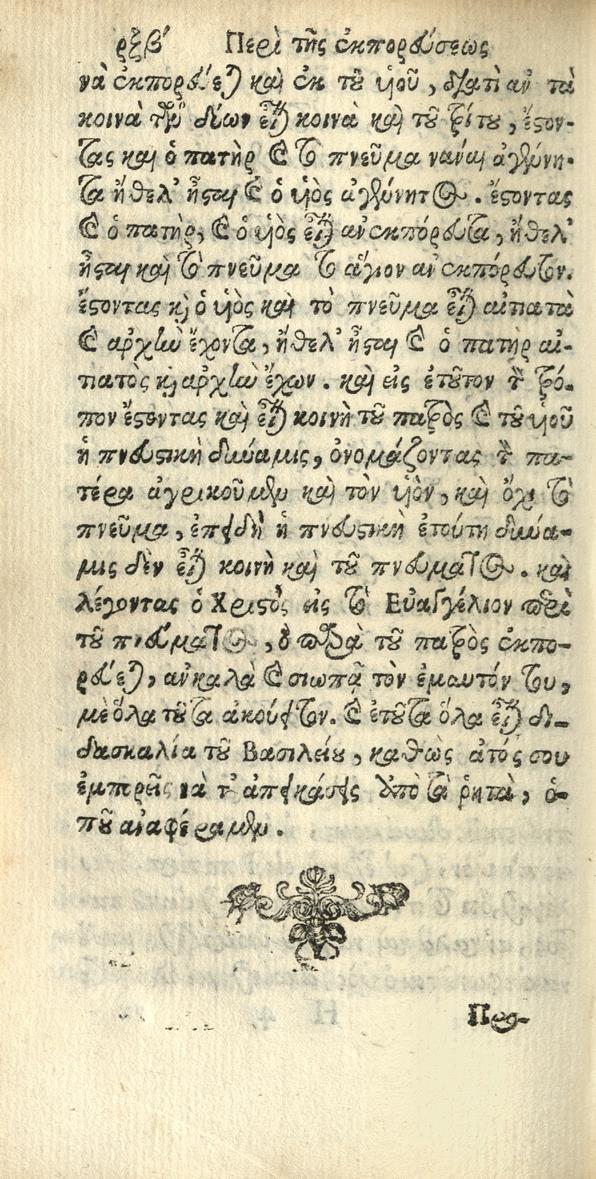 ρξβ´ Περὶ τῆς ἐκπορεύσεως
νὰ ἐκπορεύεται καὶ ἐκ τοῦ υἱοῦ, διατὶ ἂν τὰ
κοινὰ τῶν δύων εἶναι κοινὰ καὶ τοῦ τρίτου, ἔστον-
τας καὶ ὁ πατὴρ καὶ τὸ πνεῦμα νὰναι ἀγέννη-
τα ἤθελ' ἦσται καὶ ὁ υἱὸς ἀγέννητος. ἔστοντας
καὶ ὁ πατὴρ, καὶ ὁ υἱὸς εἶναι ἀνεκπόρευτα, ἤθελ'
ἦσται καὶ τὸ πνεῦμα τὸ ἅγιον ἀνεκπόρευτον.
ἔστοντας καὶ ὁ υἱὸς καὶ τὸ πνεῦμα εἶναι αἰτιατὰ
καὶ ἀρχὴν ἔχοντα, ἤθελ' ἦσται καὶ ὁ πατὴρ αἰ-
τιατὸς καὶ ἀρχὴν ἔχων. καὶ εἰς ἐτοῦτον τὸν τρό-
πον ἔστοντας καὶ εἶναι κοινὴ τοῦ πατρὸς καὶ τοῦ υἱοῦ
ἡ πνευστικὴ δύναμις, ὀνομάζοντας τὸν πα-
τέρα ἀγρικοῦμεν καὶ τὸν υἱὸν, καὶ ὄχι τὸ
πνεῦμα, ἐπειδὴ ἡ πνευστικὴ ἐτούτη δύνα-
μις δὲν εἶναι κοινὴ καὶ τοῦ πνεύματος. καὶ
λέγοντας ὁ Χριστὸς εἰς τὸ Εὐαγγέλιον περὶ
τοῦ πνεύματος, ὃ παρὰ τοῦ πατρὸς ἐκπο-
ρεύεται, ἀνκαλὰ καὶ σιωπᾷ τὸν ἐμαυτόν του,
μὲ ὅλα τοῦτα ἀκούεται. καὶ ἐτοῦτα ὅλα εἶναι δι-
δασκαλία τοῦ Βασιλείου, καθὼς ἀτός σου
ἐμπορεῖς νὰ τ' ἀπεικάσῃς ἀπὸ τὰ ῥητὰ, ὁ-
ποῦ ἀναφέραμεν.
Προ-